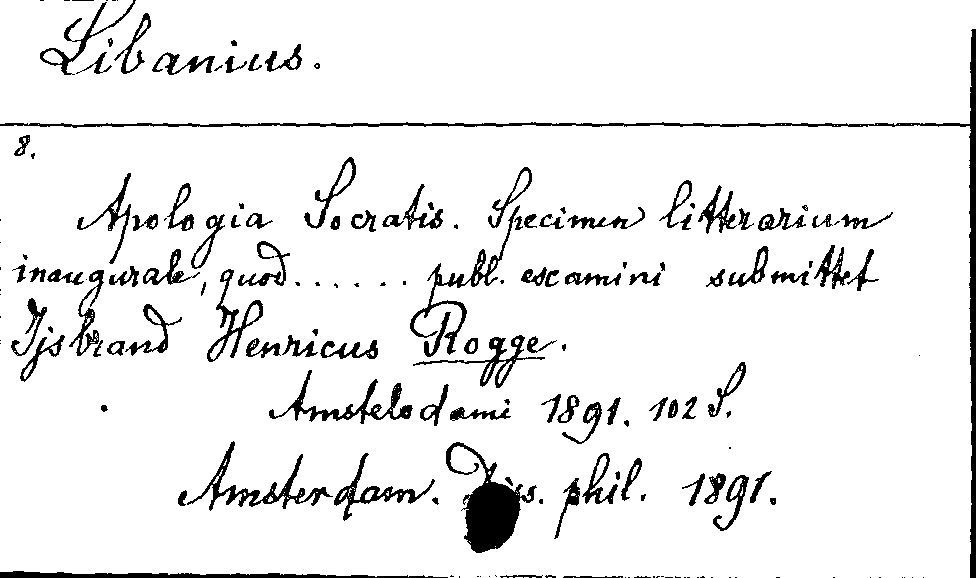 Libanius.
8.
Apologia Socratis. Specimen litterarium
inaugurale, quod...... publ. escamini submittet
Ijsbrand Henricus Rogge.
Amstelodami 1891. 102 S.
Amsterdam. Diss. phil. 1891.